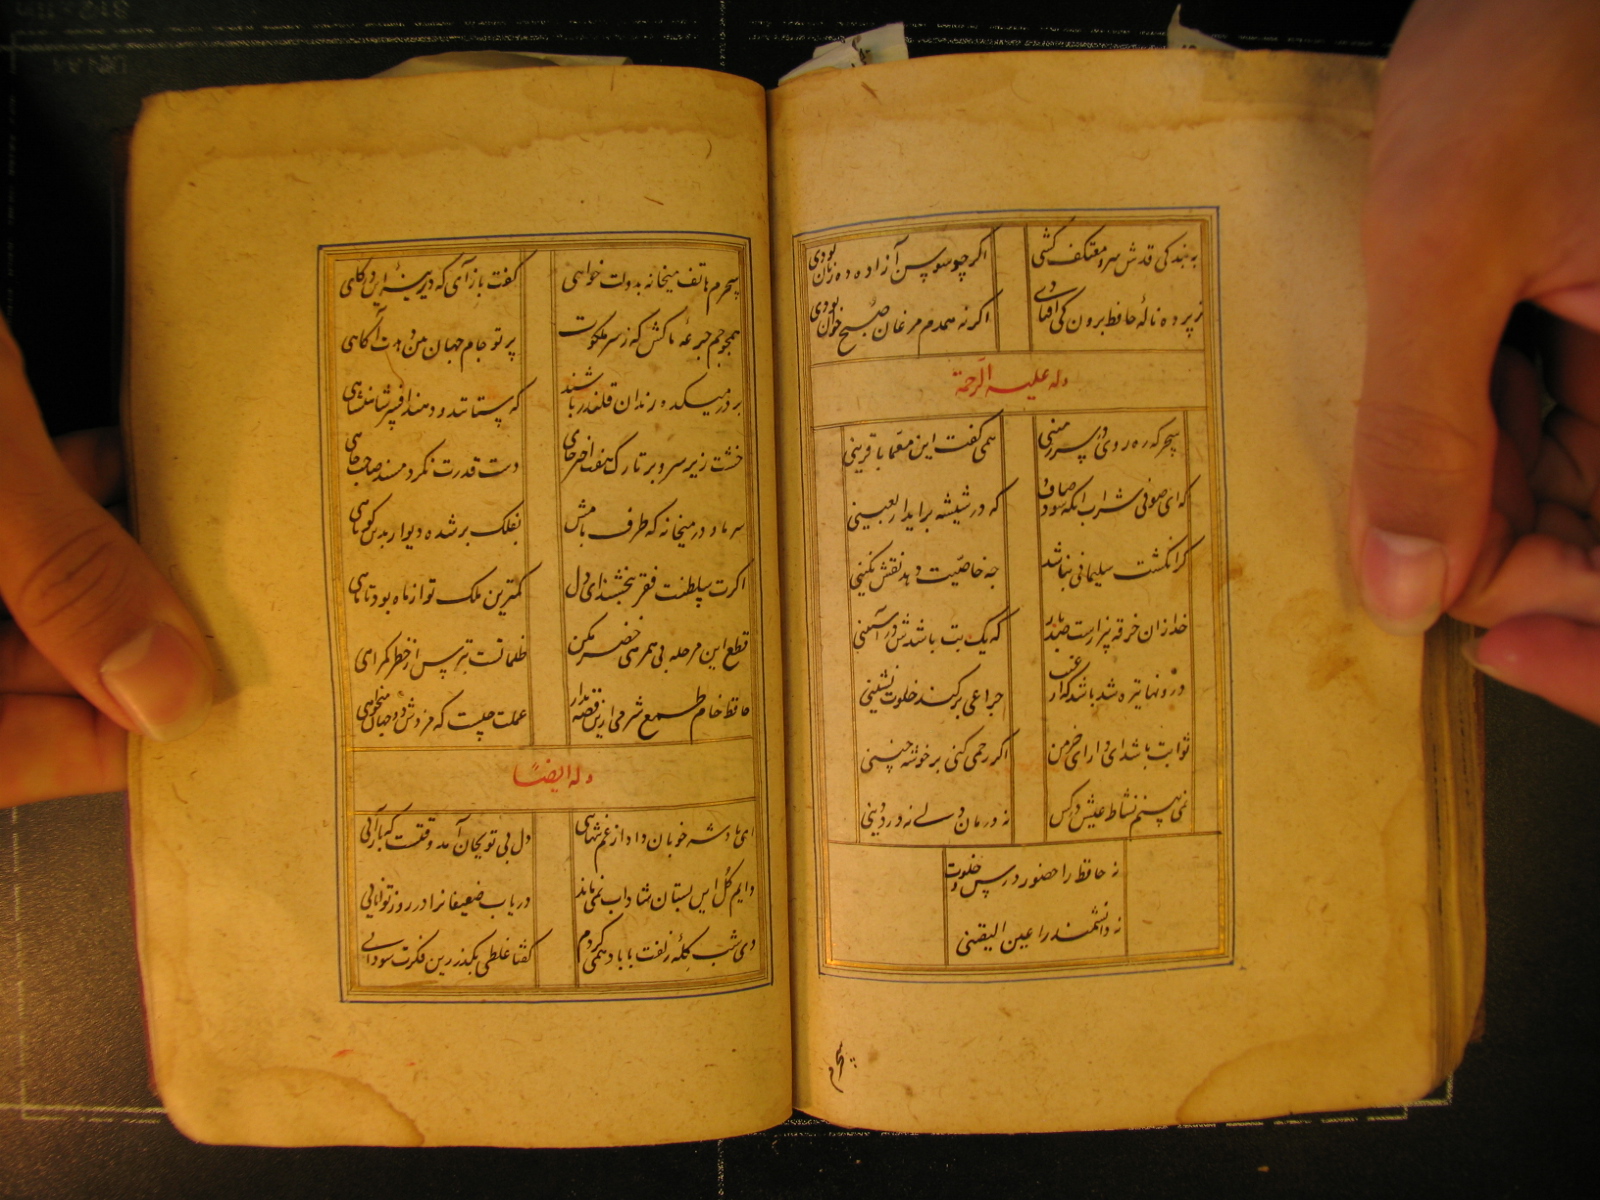 به بندکی قدش سرو معتکف کشتی اکر چو سوسن آزاده ده زبان بودی
ز پرده نالهٔ حافظ برون کی افتادی اکر نه همدم مرغان صبح خوان بودی
وله علیه الرحمة
سحرکه ره روی در سرزمینی همی کفت این معما با قرینی
که ای صوفی شراب آنکه شود صاف که در شیشه براید اربعینی
کر انکشت سلیمانی نباشد چه خاصیت دهد نقش نکینی
خدا زان خرقه بیزارست صد بار که یک بت باشدش در آستینی
درونها تیره شد باشد که از غیب چراغی بر کند خلوت نشینی
ثوابت باشد ای دارای خرمن اکر رحمی کنی بر خوشه چینی
نمی بینم نشاط عیش در کس نه درمان دلی نه درد دینی
نه حافظ را حضور درس و خلوت
نه دانشمند را عین الیقینی
سحرم
سحرم هاتف میخانه بدولت خواهی کفت باز آی که دیرینهٔ این درکاهی
همچو جم جرعهٔ ما کش که ز سر ملکوت پرتو جام جهان بین دهدت آکاهی
بر در میکده رندان قلندر باشند که ستانند و دهند افسر شاهنشاهی
خشت زیر سر و بر تارک هفت اختر پای دست قدرت نکر و مسند صاحب جاهی
سر ما و در میخانه که طرف بامش بفلک بر شده دیوار بدین کوتاهی
اکرت سلطنت فقر بخشند ای دل کمترین ملک تو از ماه بود تا ماهی
قطع این مرحله بی همرهی خضر مکن ظلماتست بترس از خطر کمراهی
حافظ خام طمع شرمی ازین قصه بدار عملت چیست که مزدش دو جهان میخواهی
وله ایضاً
ای پادشه خوبان داد از غم تنهایی دل بی تو بجان آمد وقتست که بازآیی
دایم کل این بستان شاداب نمی ماند دریاب ضعیفانرا در روز توانایی
دی شب کلهٔ زلفت با باد همی کردم کفتا غلطی بکذر زین فکرت سودایی